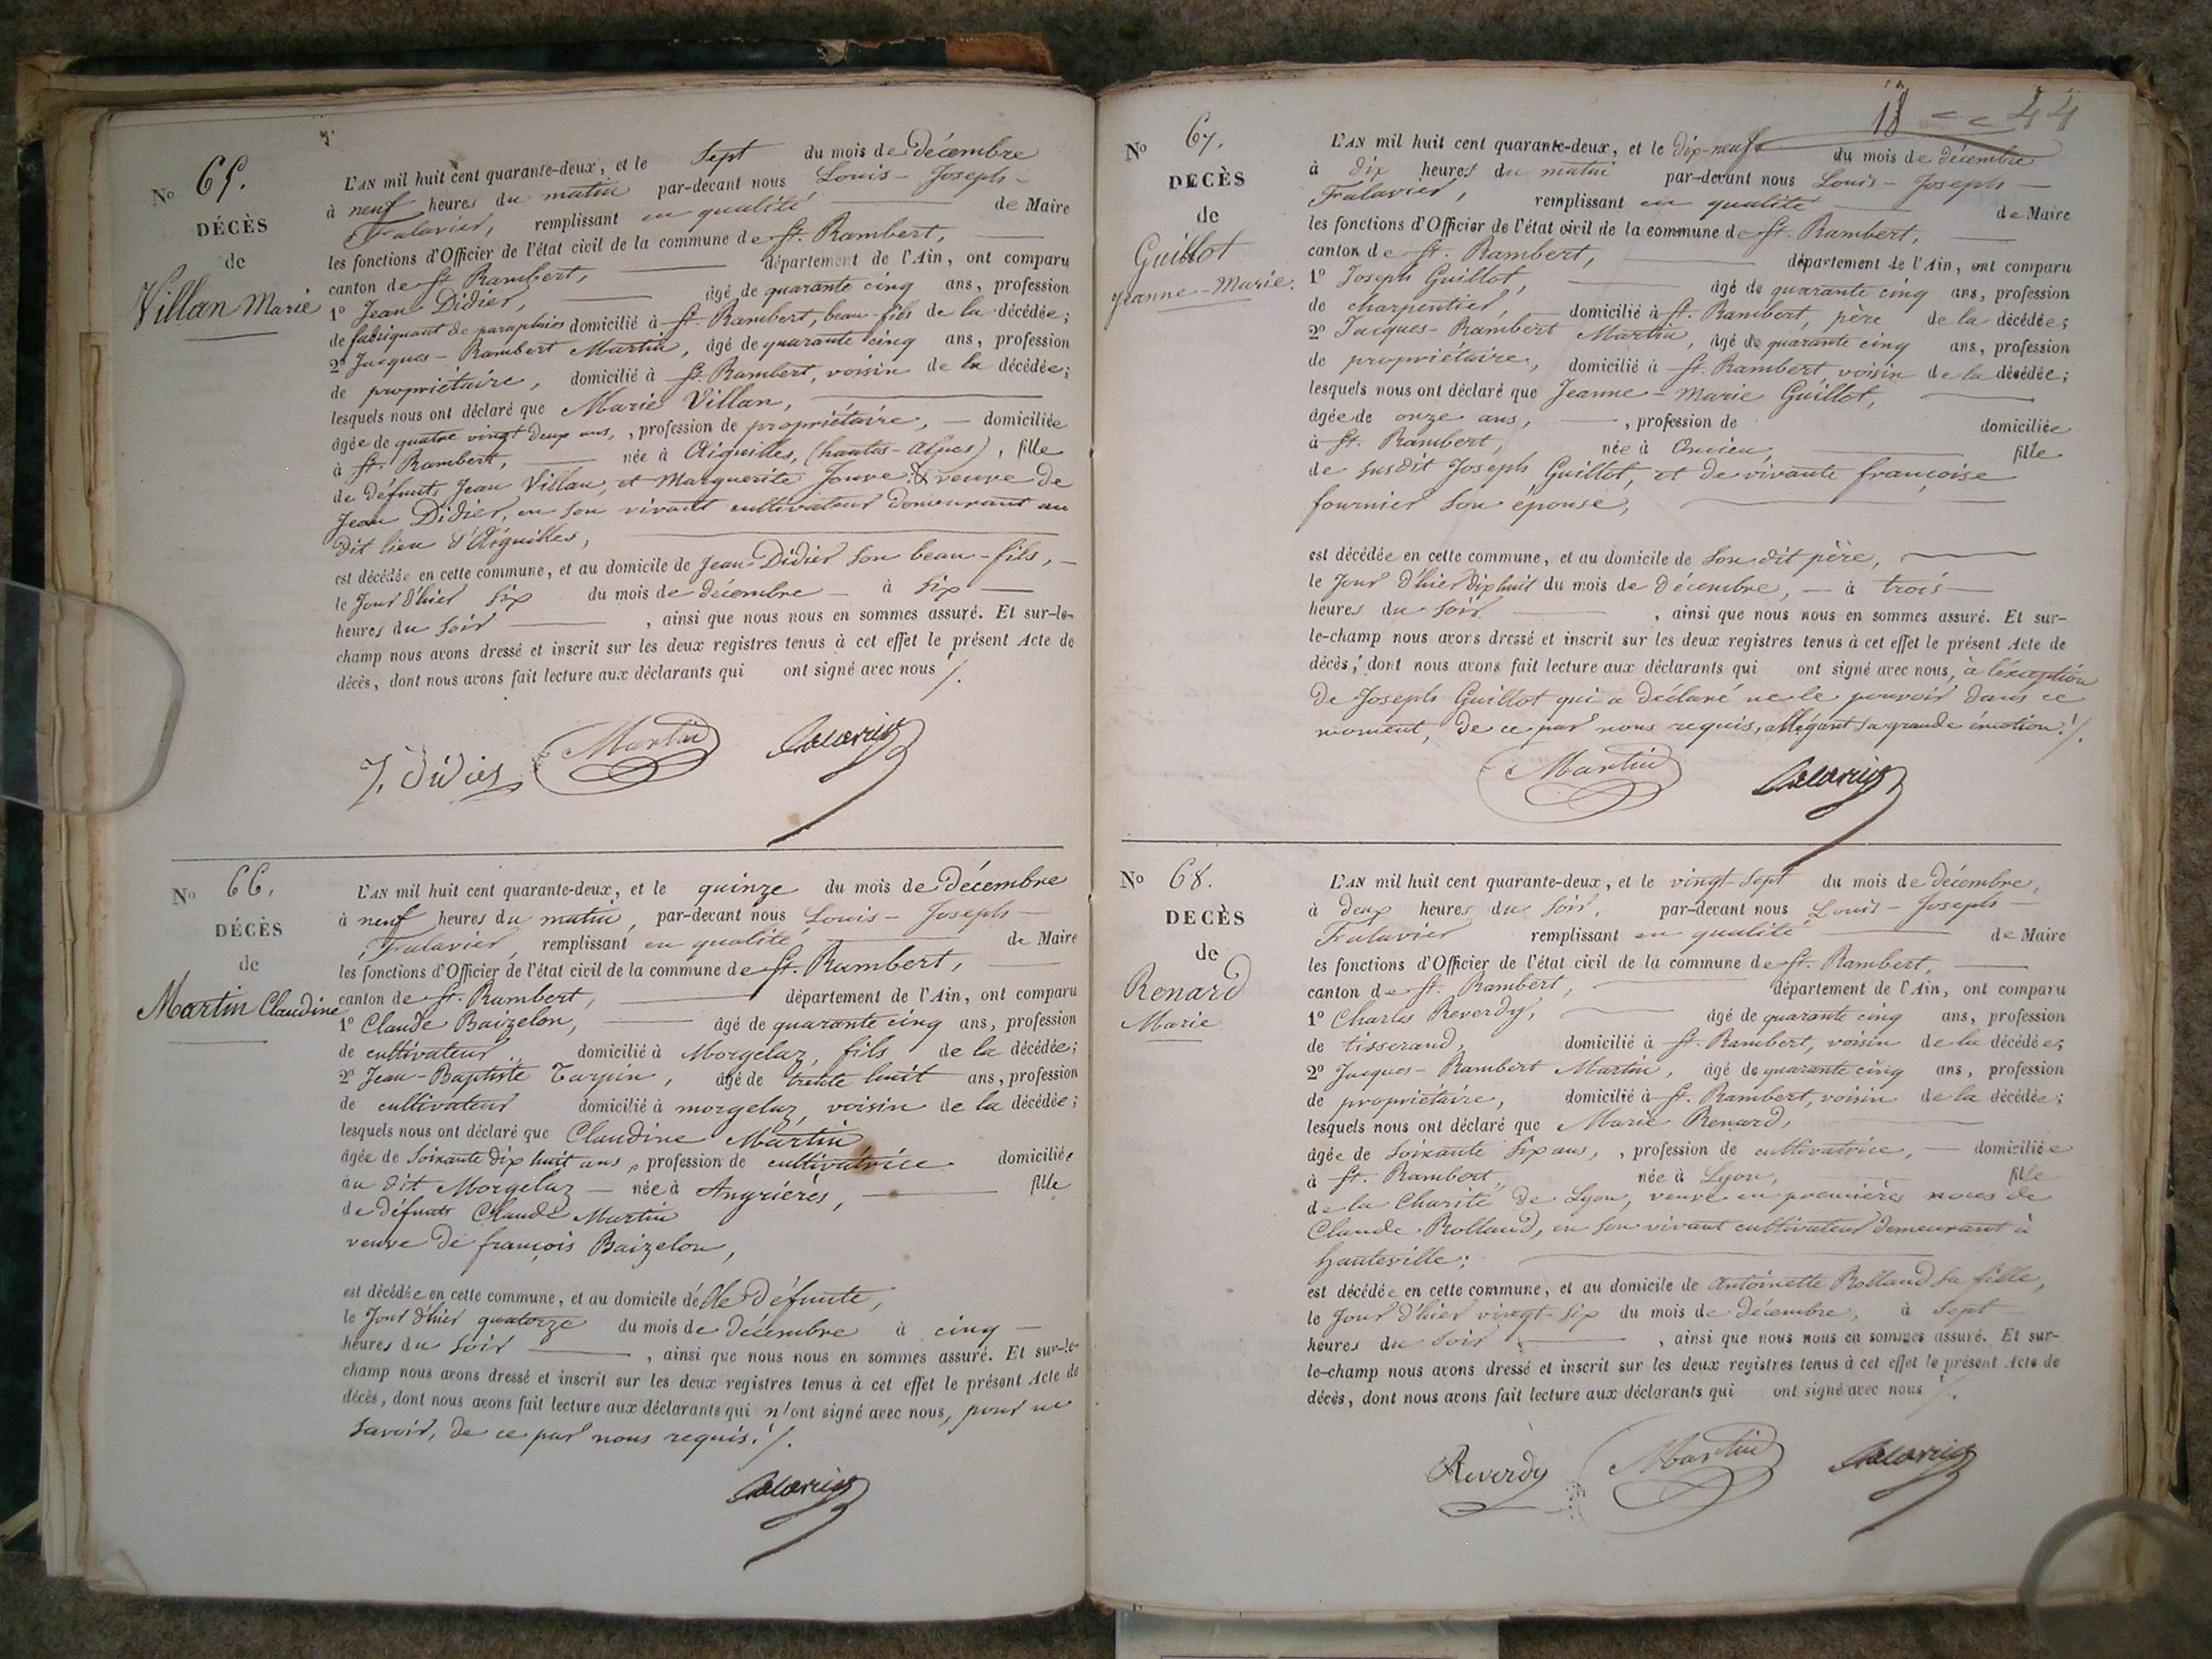 No 65.
DÉCÈS
de
Villan Marie
L'AN mil huit cent quarante-deux, et le sept du mois de Décembre
à neuf heures du matin par-devant nous Louis-Joseph-
Falavier, remplissant en qualité de Maire
les fonctions d'Officier de l'état civil de la commune de St. Rambert,
canton de St Rambert, département de l'Ain, ont comparu
1o Jean Didier, âgé de quarante cinq ans, profession
de fabriquant de parapluies domicilié à St. Rambert, beau-fils de la décédée;
2o Jacques-Rambert Martin, âgé de quarante cinq ans, profession
de propriétaire, domicilié à St. Rambert, voisin de la décédée;
lesquels nous ont déclaré que Marie Villan,
âgée de quatre vingt deux ans, , profession de propriétaire, domiciliée
à St. Rambert, née à Aiguilles, (hautes-Alpes), fille
de défunts Jean Villan, et Marguerite Jouve & veuve de
Jean Didier, en son vivant cultivateur demeurant au
dit lieu d'Aiguilles,
est décédée en cette commune, et au domicile de Jean Didier son beau-fils,
le jour d'hier six du mois de décembre à six
heures du soir , ainsi que nous nous en sommes assuré. Et sur-le-
champ nous avons dressé et inscrit sur les deux registres tenus à cet effet le présent Acte de
décès, dont nous avons fait lecture aux déclarants qui ont signé avec nous ./.
J. Didier Martin Falavier
No 66.
DÉCÈS
de
Martin Claudine
L'AN mil huit cent quarante-deux, et le quinze du mois de Décembre
à neuf heures du matin, par-devant nous Louis-Joseph-
Falavier, remplissant en qualité de Maire
les fonctions d'Officier de l'état civil de la commune de St. Rambert,
canton de St. Rambert, département de l'Ain, ont comparu
1o Claude Baizelon, âgé de quarante cinq ans, profession
de cultivateur domicilié à Morgelaz, fils de la décédée;
2o Jean-Baptiste Tarpin, âgé de trente huit ans, profession
de cultivateur domicilié à morgelaz, voisin de la décédée;
lesquels nous ont déclaré que Claudine Martin
âgée de soixante dix huit ans, profession de cultivatrice domiciliée
au dit Morgelaz née à Angrières, fille
de défunts Claude Martin
veuve de françois Baizelon,
est décédée en cette commune, et au domicile de la Défunte,
le jour d'hier quatorze du mois de décembre à cinq
heures du soir , ainsi que nous nous en sommes assuré. Et sur-le-
champ nous avons dressé et inscrit sur les deux registres tenus à cet effet le présent Acte de
décès, dont nous avons fait lecture aux déclarants qui n'ont signé avec nous, pour ne
savoir, de ce par nous requis ./.
Falavier
18 44
No 67.
DECÈS
de
Guillot
Jeanne-Marie.
L'AN mil huit cent quarante-deux, et le dix-neuf du mois de décembre
à dix heures du matin par-devant nous Louis-Joseph-
Falavier, remplissant en qualité de Maire
les fonctions d'Officier de l'état civil de la commune de St. Rambert,
canton de St. Rambert, département de l'Ain, ont comparu
1o Joseph Guillot, âgé de quarante cinq ans, profession
de charpentier, domicilié à St. Rambert, père de la décédée;
2o Jacques-Rambert Martin, âgé de quarante cinq ans, profession
de propriétaire, domicilié à St. Rambert voisin de la décédée;
lesquels nous ont déclaré que Jeanne-Marie Guillot,
âgée de onze ans, , profession de domiciliée
à St. Rambert, née à Oncieu, fille
de susdit Joseph Guillot, et de vivante françoise
fournier son épouse,
est décédée en cette commune, et au domicile de son dit père,
le jour d'hier dix huit du mois de Décembre, à trois
heures du soir , ainsi que nous nous en sommes assuré. Et sur-
le-champ nous avons dressé et inscrit sur les deux registres tenus à cet effet le présent Acte de
décès, dont nous avons fait lecture aux déclarants qui ont signé avec nous, à l'éxception
de Joseph Guillot qui a déclaré ne le pouvoir dans ce
moment, de ce par nous requis, allégant sa grande émotion ./.
Martin Falavier
No 68.
DECÈS
de
Renard
Marie
L'AN mil huit cent quarante-deux, et le vingt-sept du mois de Décembre,
à deux heures du soir, par-devant nous Louis-Joseph
Falavier remplissant en qualité de Maire
les fonctions d'Officier de l'état civil de la commune de St. Rambert,
canton de St. Rambert, département de l'Ain, ont comparu
1o Charles Reverdy, âgé de quarante cinq ans, profession
de tisserand, domicilié à St. Rambert, voisin de la décédée;
2o Jacques-Rambert Martin, âgé de quarante cinq ans, profession
de propriétaire, domicilié à St. Rambert, voisin de la décédée;
lesquels nous ont déclaré que Marie Renard,
âgée de soixante six ans, , profession de cultivatrice, domiciliée
à St. Rambert, née à Lyon, fille
de la Charité de Lyon, veuve en premières noces de
Claude Rolland, en son vivant cultivateur demeurant à
hauteville;
est décédée en cette commune, et au domicile de Antoinette Rolland sa fille,
le jour d'hier vingt-six du mois de décembre, à sept
heures du soir , ainsi que nous nous en sommes assuré. Et sur-
le-champ nous avons dressé et inscrit sur les deux registres tenus à cet effet le présent Acte de
décès, dont nous avons fait lecture aux déclarants qui ont signé avec nous ./.
Reverdy Martin Falavier